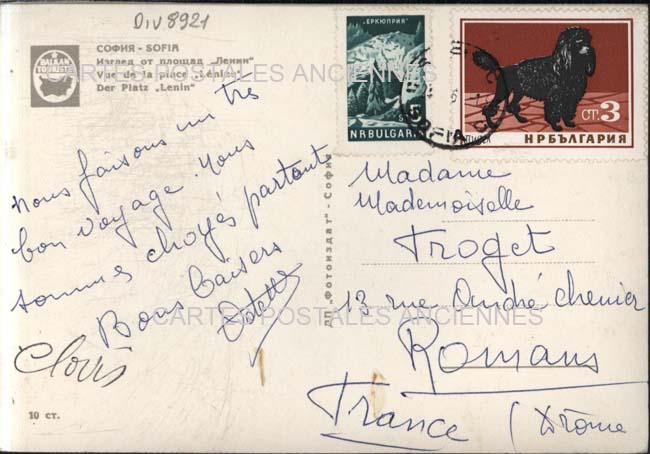 Div 8921
BALKAN
TOURISTE
СОФИЯ - SOFIA
Изглед от площад „Ленин"
Vue de la place „Lénine"
Der Platz „Lenin"
CARTES POSTALES ANCIENNES
Nous faisons un très
bon voyage. Nous
sommes choyés partout
Bons baisers
Odette
Clovis
10 ст.
ДП „Фотоиздат" - София
„ЕРКЮПРИЯ"
5
NR BULGARIA
СТ. 3
НР БЪЛГАРИЯ
Madame
Mademoiselle
Troget
13 rue André Chenier
Romans
France (Drôme
CARTES POSTALES ANCIENNES